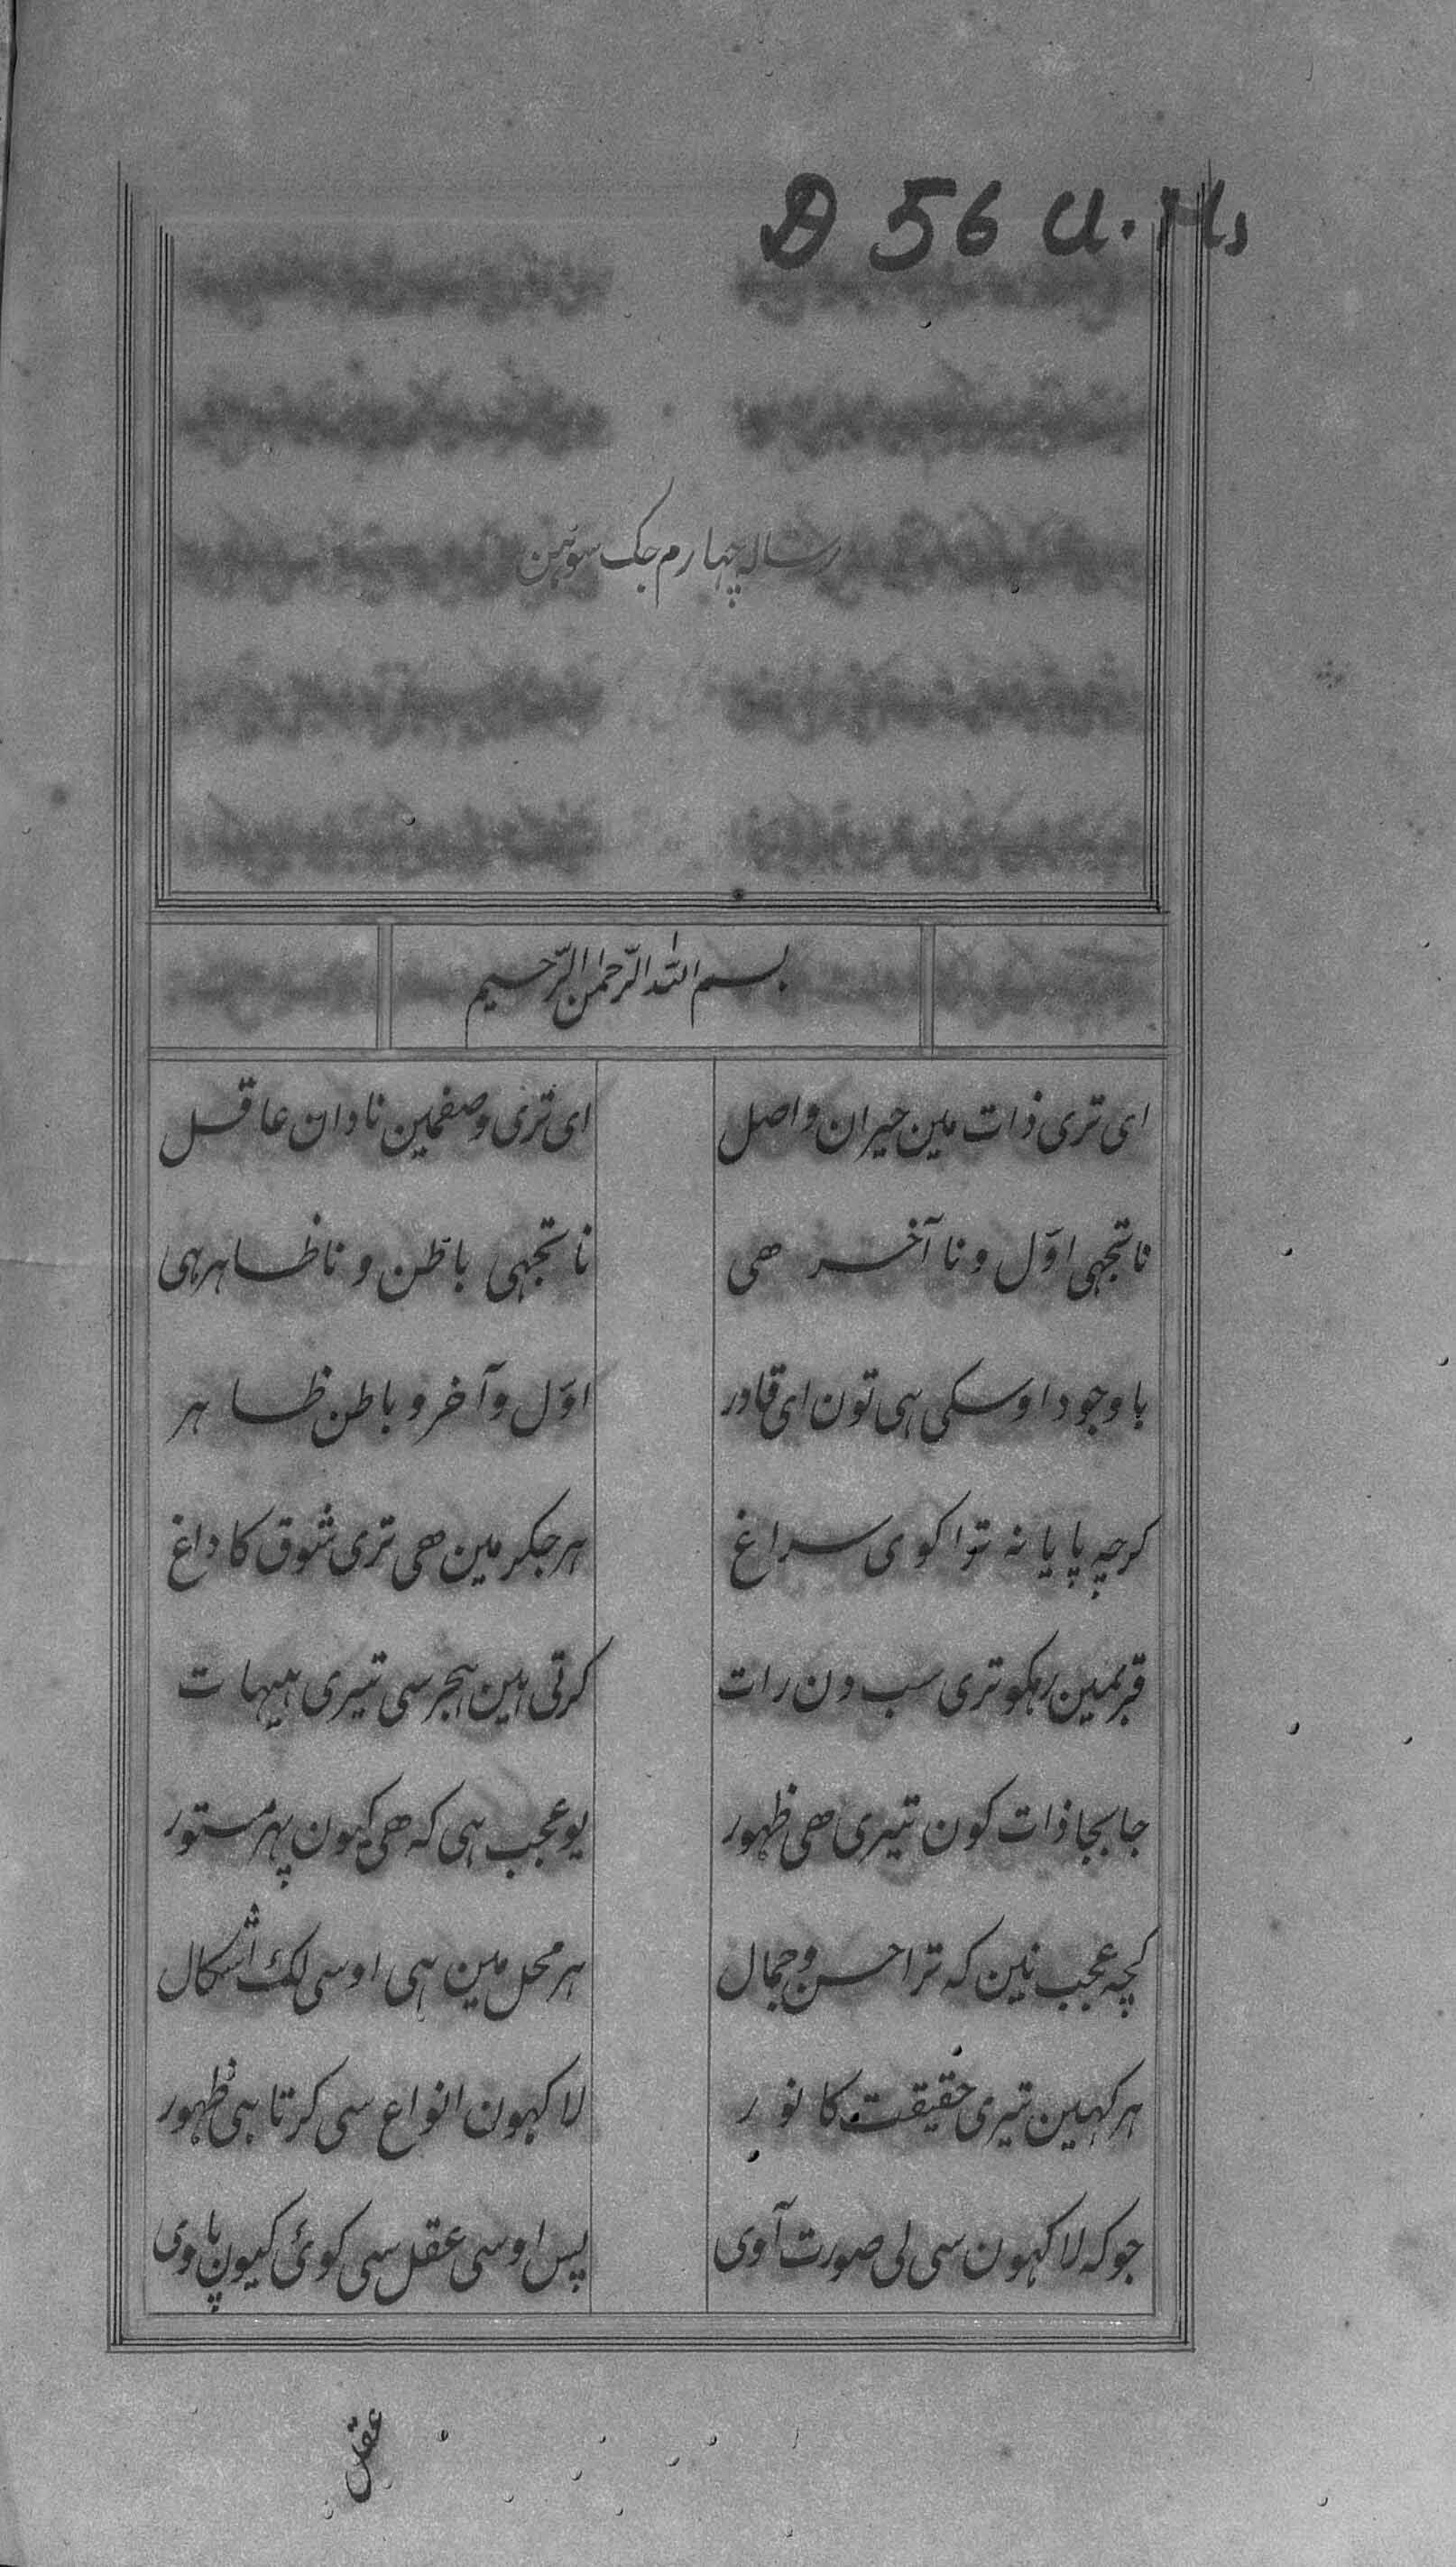 D 56 U. Ms
رساله چهارم جک سوہن
بسم الله الرحمن الرحیم
ای تری ذات مین حیران واصل ای تری وصفمین نادان عاقل
ناتجہی اوّل و نا آخر هی ناتجہی باطن و نا ظاہر ہی
باوجود اوسکی ہی تون ای قادر اوّل و آخر و باطن ظاہر
کرچہ پایا نہ ترا کوی سراغ ہر جکر مین هی تری شوق کا داغ
قربمین رہکو تری سب دن رات کرتی ہین ہجر سی تیری ہیہات
جابجا ذات کون تیری هی ظہور یو عجب ہی کہ هی کیون پہر مستور
کچہ عجب نین کہ ترا حسن و جمال ہر محل مین ہی اوسی لک اشکال
ہر کہین تیری حقیقت کا نور لاکہون انواع سی کرتا ہی ظہور
جو کہ لاکہون سی لی صورت آوی پس اوسی عقل سی کوئی کیون پاوی
عقل